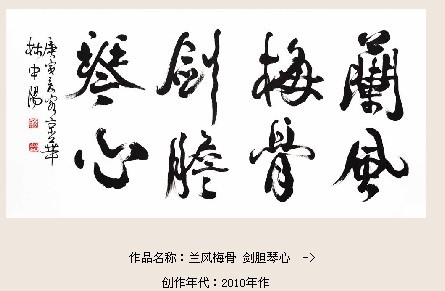 蘭風
梅骨
劍膽
琴心
庚寅之秋京華
林中陽
作品名称：兰风梅骨 剑胆琴心 ->
创作年代：2010年作